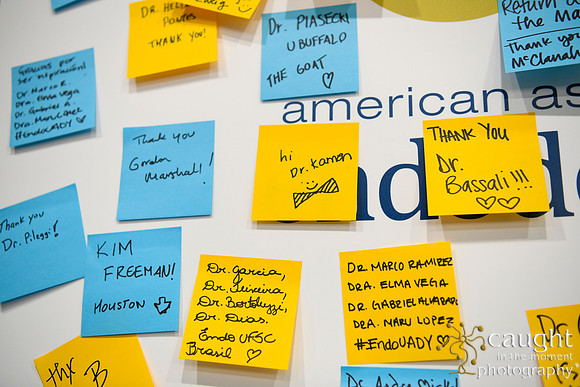 Dr. Helen
Pontes
THANK YOU!
Dr. PIASECKI
U BUFFALO
THE GOAT ♡
Return
the Ma
Thank you
McClana
Gracias por
ser inspiración!
Dr. Marco R.
Dra. Elma Vega
Dr. Gabriel A.
#EndoUADY ♡
american as
endodo
Thank you
Gordon
Marshall!
hi
Dr. Kaman
THANK YOU
Dr.
Bassali!!!
♡♡
Thank you
Dr. Pileggi!
KIM
FREEMAN!
HOUSTON
Dr. Garcia,
Dr. Teixeira,
Dr. Bortoluzzi,
Dr. Dias.
Endo UFSC
Brasil ♡
DR MARCO RAMIREZ
DRA. ELMA VEGA
DR. GABRIEL ALVARADO
DRA. NARU LOPEZ
#EndoUADY ♡
thx B
caught
in the moment
photography